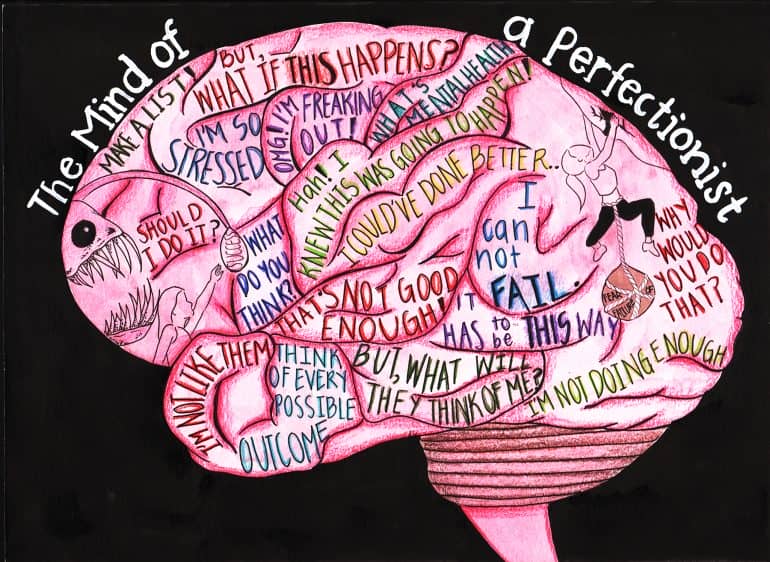 The Mind of
a Perfectionist
MAKE A LIST!
BUT,
WHAT IF THIS HAPPENS?
I'M SO
STRESSED
OMG! I'M
FREAKING
OUT!
WHAT'S
MENTAL HEALTH
HaH! I
KNEW THIS WAS GOING TO HAPPEN!
I COULD'VE DONE BETTER..
SHOULD
I DO IT?
SUCCESS
WHAT
DO YOU
THINK?
THAT'S NOT GOOD
ENOUGH!
I
can
not
FAIL.
IT
HAS to be THIS WAY
WHY
WOULD
YOU DO
THAT?
FEAR OF
FAILURE
I'M NOT LIKE THEM
THINK
OF EVERY
POSSIBLE
OUTCOME
BUT, WHAT WILL
THEY THINK OF ME?
I'M NOT DOING ENOUGH